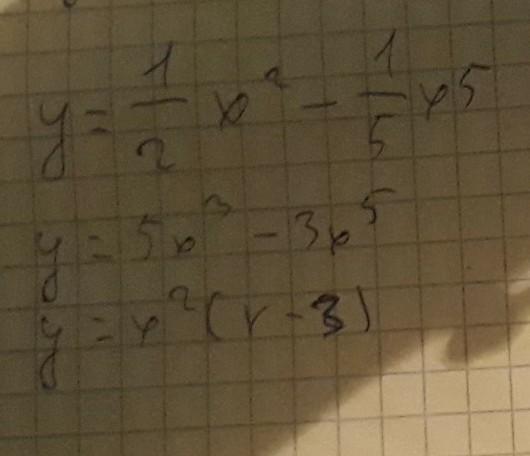 y = 1/2 x² - 1/5 x⁵
y = 5x³ - 3x⁵
y = x²(x - 3)